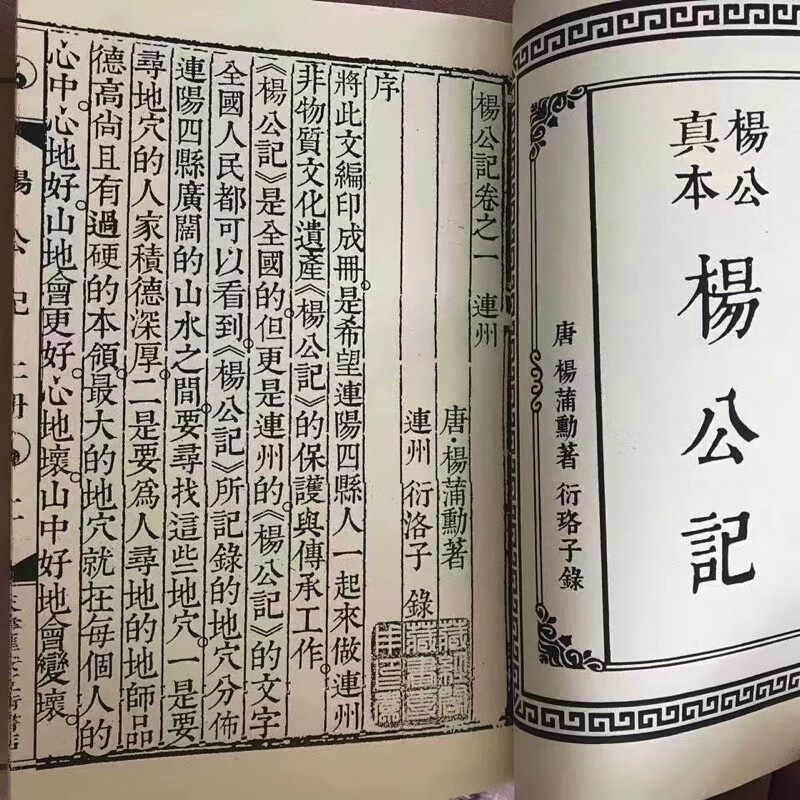 楊公
真本
楊公記
唐 楊蒲勳著 衍珞子錄
楊公記卷之一 連州
唐·楊蒲勳著
連州 衍洛子 錄
序
將此文編印成冊。是希望連陽四縣人一起來做連州
非物質文化遺產《楊公記》的保護與傳承工作。
《楊公記》是全國的。但更是連州的。《楊公記》的文字
全國人民都可以看到。《楊公記》所記錄的地穴分佈
連陽四縣廣闊的山水之間。要尋找這些地穴。一是要
尋地穴的人家積德深厚。二是要爲人尋地的地師品
德高尚且有過硬的本領。最大的地穴就在每個人的
心中。心地好。山地會更好。心地壞。山中好地會變壞。
楊公記 上冊